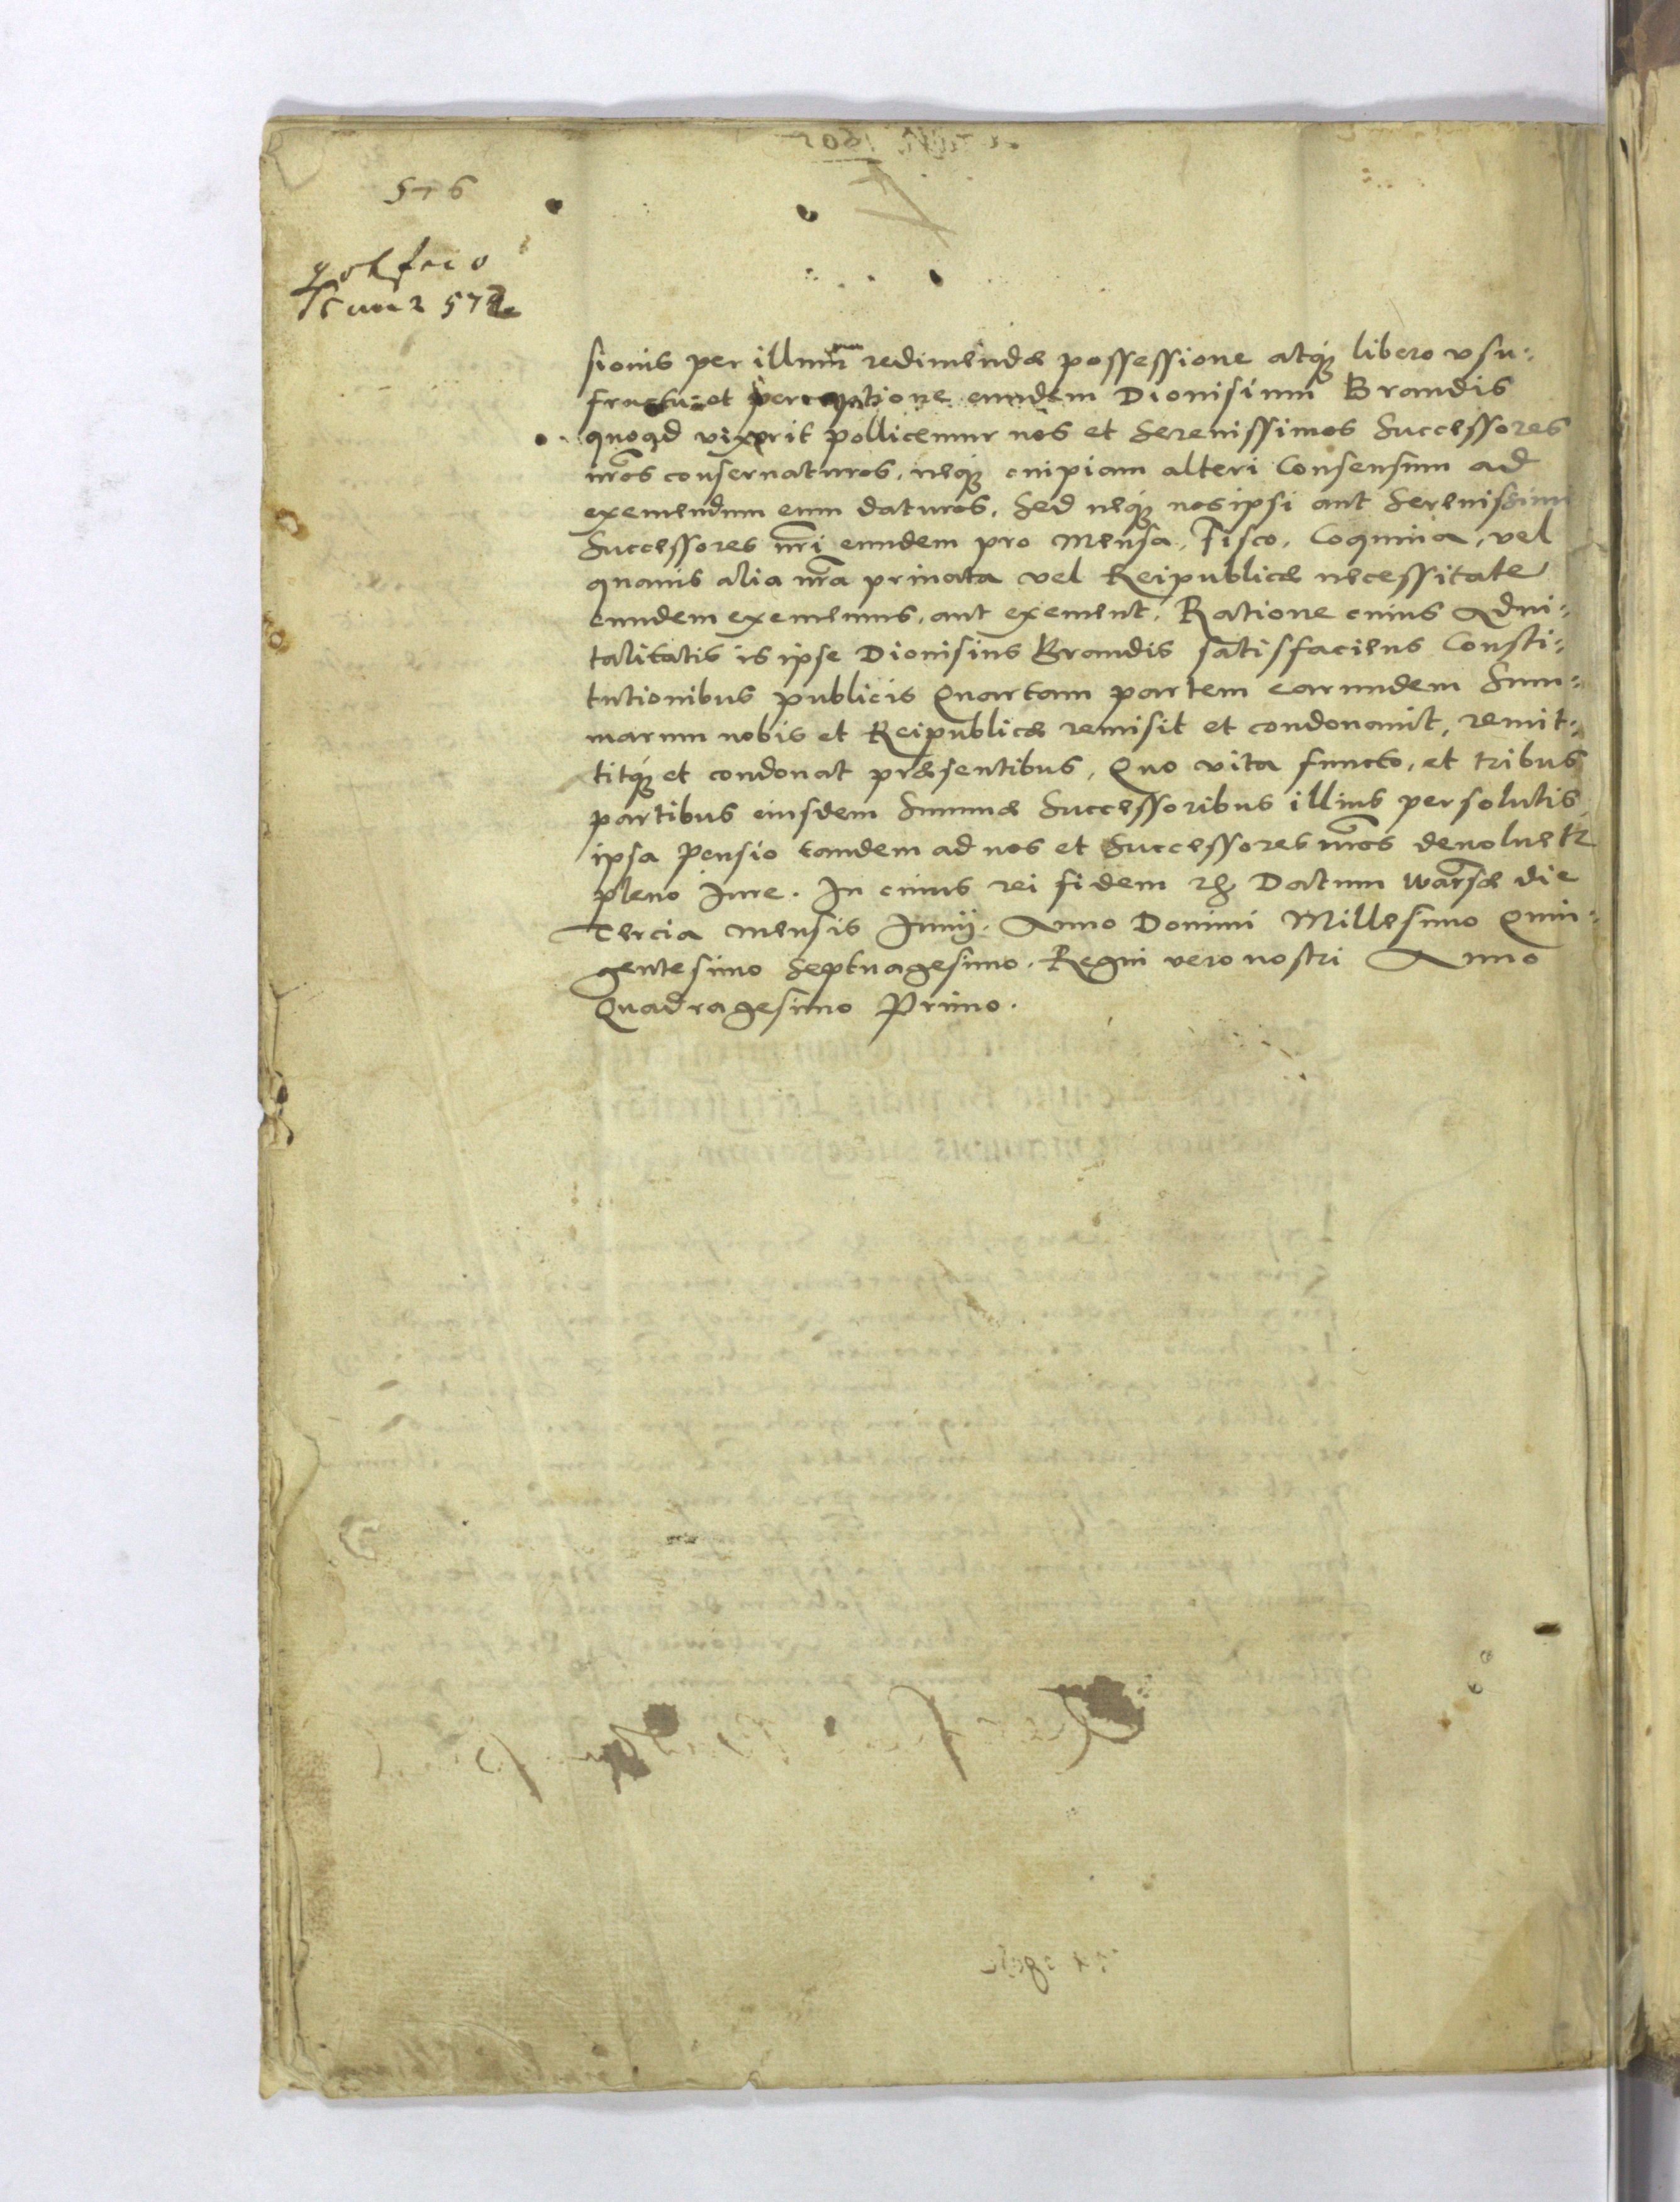 576
578
sionis per illum redimendæ possessione atq3 libero vsu-
fructu et perceptione eundem Dionisium Brandis
quoad vixerit pollicemur nos et Serenissimos Successores
nros conseruaturos, neq3 cuipiam alteri Consensum ad
exemendum eum daturos, Sed neq3 nos ipsi aut Serenissimi
Successores nri eundem pro Mensa, Fisco, Coquina, vel
quauis alia nra priuata vel Reipublicæ necessitate
eundem exememus, aut exement, Ratione cuius Adui-
talitatis is ipse Dionisius Brandis satisfaciens Consti-
tutionibus publicis Quartam partem earundem Sum-
marum nobis et Reipublicæ remisit et condonauit, remit-
titq3 et condonat præsentibus, Quo vita functo, et tribus
partibus eiusdem Summæ Successoribus illius persolutis
ipsa Pensio tandem ad nos et Successores nros deuoluetr
pleno Jure. In cuius rei fidem Datum Warsæ die
Tercia Mensis Junij. Anno Domini Millesimo Quin-
gentesimo Septuagesimo. Regni vero nostri Anno
Quadragesimo Primo.